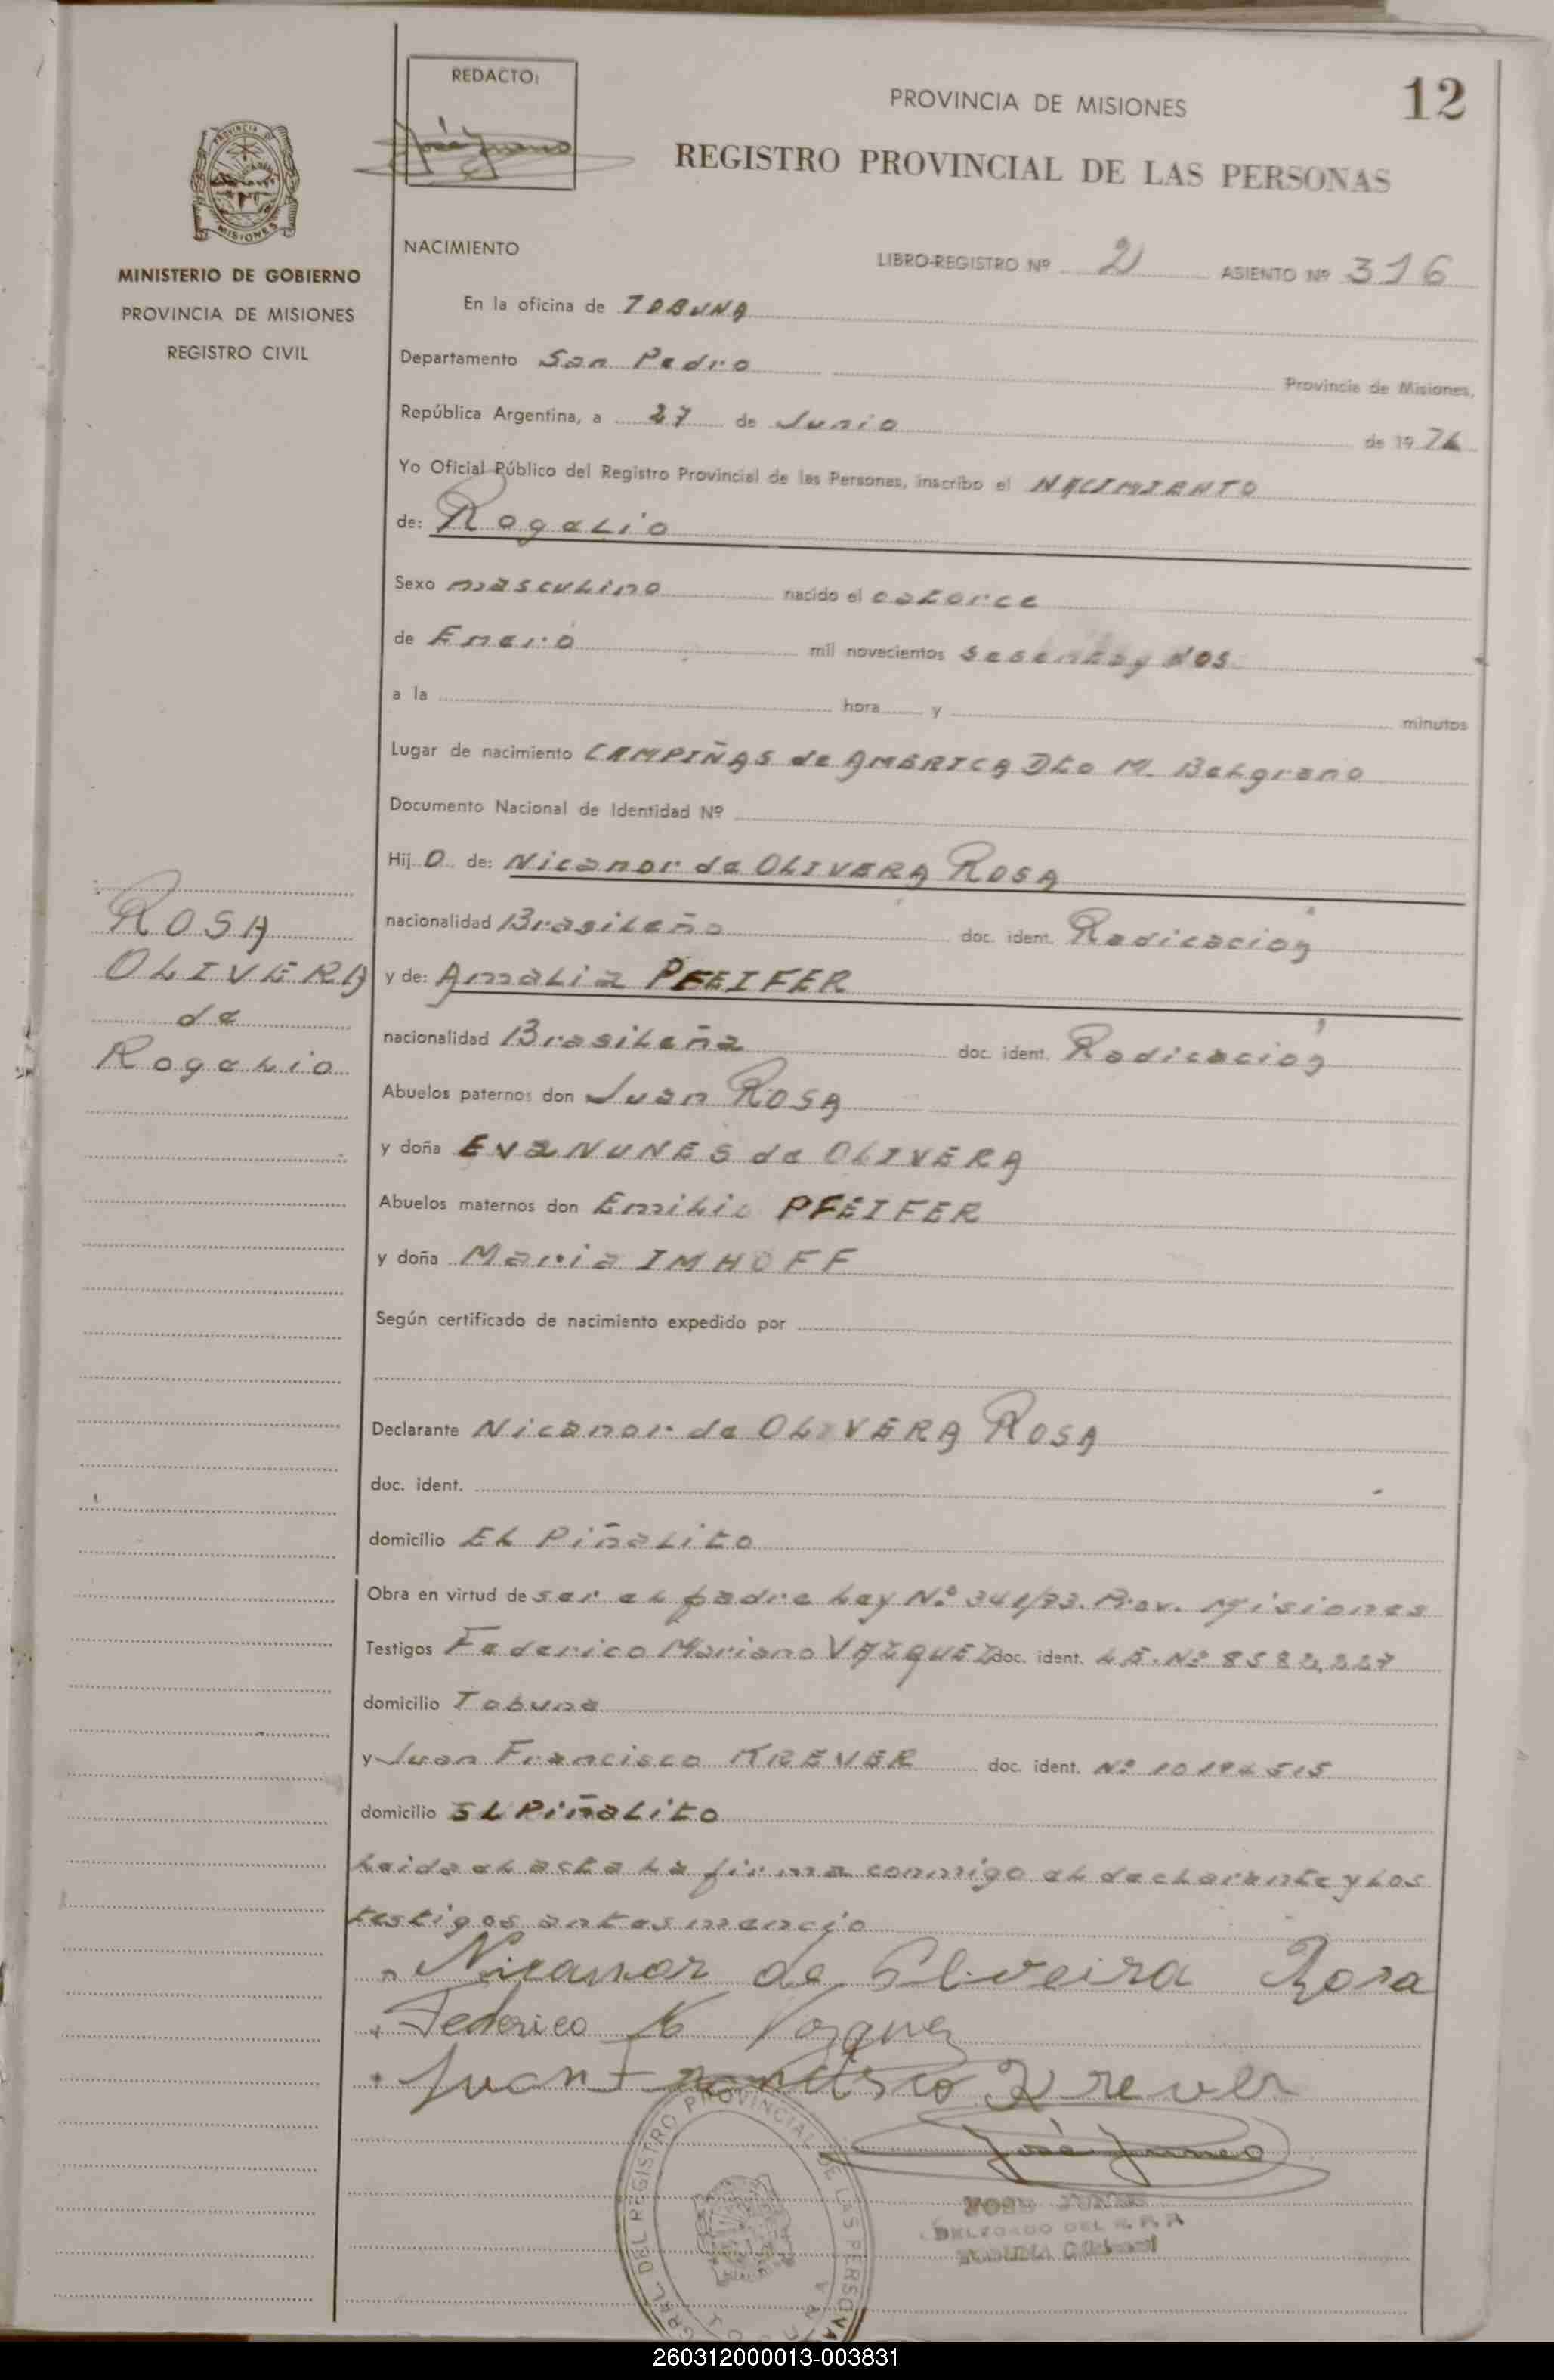 REDACTO:
José Juneo
PROVINCIA DE MISIONES
12
REGISTRO PROVINCIAL DE LAS PERSONAS
PROVINCIA DE
MISIONES
MINISTERIO DE GOBIERNO
PROVINCIA DE MISIONES
REGISTRO CIVIL
NACIMIENTO
LIBRO-REGISTRO Nº 2 ASIENTO Nº 316
En la oficina de TOBUNA
Departamento San Pedro Provincia de Misiones,
República Argentina, a 27 de Junio de 19 76
Yo Oficial Público del Registro Provincial de las Personas, inscribo el NACIMIENTO
de: Rogelio
Sexo masculino nacido el catorce
de Enero mil novecientos sesenta y dos
a la hora y minutos
Lugar de nacimiento CAMPIÑAS de AMERICA Dto M. Belgrano
Documento Nacional de Identidad Nº
Hij o de: Nicanor de OLIVERA ROSA
nacionalidad Brasileño doc. ident. Radicación
y de: Amalia PFEIFER
nacionalidad Brasileña doc. ident. Radicación
Abuelos paternos don Juan ROSA
y doña Eva NUNES de OLIVERA
Abuelos maternos don Emilio PFEIFER
y doña Maria IMHOFF
Según certificado de nacimiento expedido por
Declarante Nicanor de OLIVERA ROSA
doc. ident.
domicilio El Piñalito
Obra en virtud de ser el padre Ley Nº 341/73. Prov. Misiones
Testigos Federico Mariano VAZQUEZ doc. ident. L.E. Nº
domicilio Tobuna
y Juan Francisco KREVER doc. ident. Nº 10194515
domicilio El Piñalito
Leida el acta la firma conmigo el declarante y los
testigos antes mencio
Nicanor de Oliveira Rosa
Federico M Vazquez
Juan Francisco Krever
José Juneo
DELEGADO DEL R. P. P.
GRAL DEL REGISTRO PROVINCIAL DE LAS PERSONAS
ROSA
OLIVERA
de
Rogelio
260312000013-003831